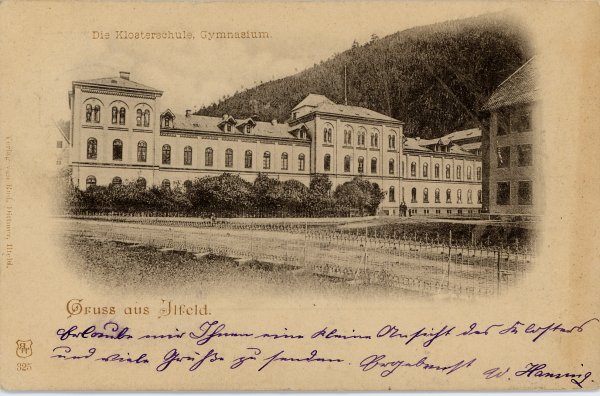 Die Klosterschule, Gymnasium.
Gruss aus Ilfeld.
Erlaube mir Ihnen eine kleine Ansicht des Klosters
und viele Grüße zu senden. Ergebenst W. Hanning.
Verlag von Rud.
Ilfeld.
325